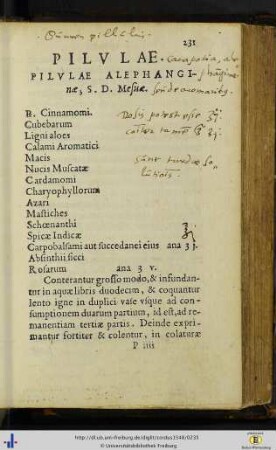 231
PILVLAE
PILVLAE ALEPHANGI-
næ, S. D. Mesuæ.
℞. Cinnamomi.
Cubebarum
Ligni aloes
Calami Aromatici
Macis
Nucis Muscatæ
Cardamomi
Charyophyllorum
Azari
Mastiches
Schœnanthi
Spicæ Indicæ
Carpobalsami aut succedanei eius ana ʒ j.
Absinthii sicci
Rosarum ana ʒ v.
Conterantur grosso modo, & infundan-
tur in aquæ libris duodecim, & coquantur
lento igne in duplici vase vsque ad con-
sumptionem duarum partium, id est, ad re-
manentiam tertiæ partis. Deinde expri-
mantur fortiter & colentur, in colaturæ
P iiij
http://dl.ub.uni-freiburg.de/diglit/cordus1548/0235
© Universitätsbibliothek Freiburg